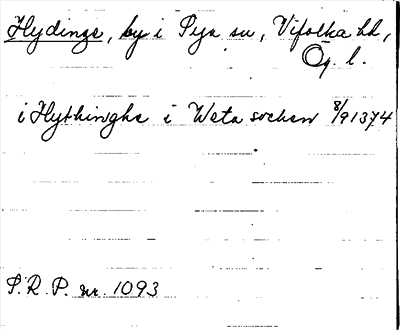 Hydinge, by i Pya sn, Vifolka hd,
Ög. l.
i Hythinghe i Weta sochen 8/9 1374
S. R. P. nr. 1093